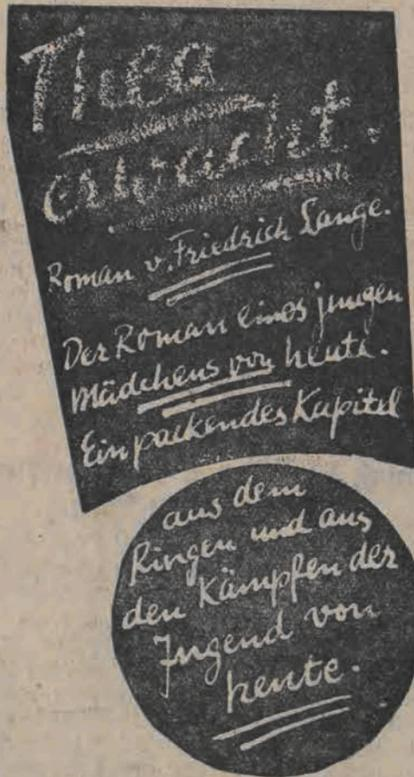 Thea
erwacht.
Roman v. Friedrich Lange.
Der Roman eines jungen
Mädchens von heute.
Ein packendes Kapitel
aus dem
Ringen und aus
den Kämpfen der
Jugend von
heute.